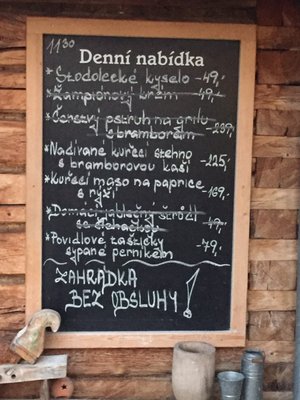 1130
Denní nabídka
* Stodolecké kyselo -49,-
* Žampiónový krém -49,-
* Čerstvý pstruh na grilu
s bramborem -239,-
* Nadívané kuřecí stehno
s bramborovou kaší -125,-
* Kuřecí maso na paprice
s rýží 169,-
* Domácí jablečný štrůdl
se šlehačkou 49,-
* Povidlové taštičky
sypané perníkem -79,-
ZAHRÁDKA
BEZ OBSLUHY!